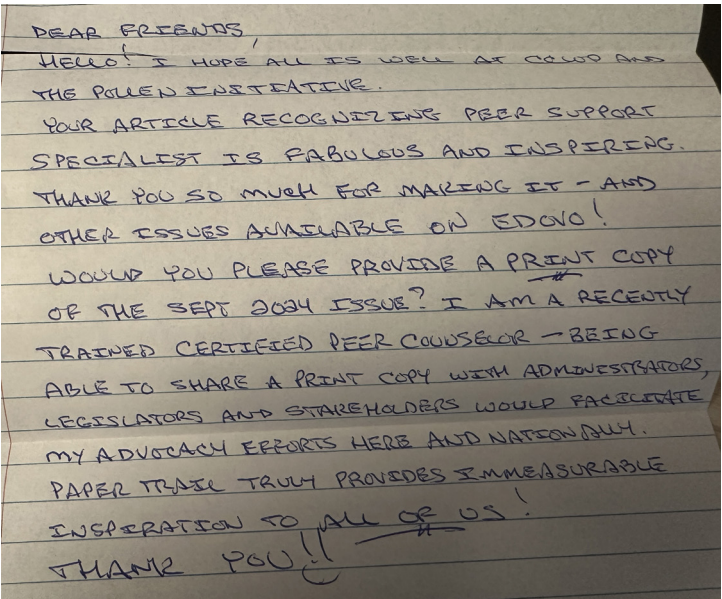 DEAR FRIENDS,
HELLO! I HOPE ALL IS WELL AT CCWF AND
THE POLLEN INITIATIVE.
YOUR ARTICLE RECOGNIZING PEER SUPPORT
SPECIALIST IS FABULOUS AND INSPIRING.
THANK YOU SO MUCH FOR MAKING IT - AND
OTHER ISSUES AVAILABLE ON EDOVO!
WOULD YOU PLEASE PROVIDE A PRINT COPY
OF THE SEPT 2024 ISSUE? I AM A RECENTLY
TRAINED CERTIFIED PEER COUNSELOR - BEING
ABLE TO SHARE A PRINT COPY WITH ADMINISTRATORS,
LEGISLATORS AND STAKEHOLDERS WOULD FACILITATE
MY ADVOCACY EFFORTS HERE AND NATIONALLY.
PAPER TRAIL TRULY PROVIDES IMMEASURABLE
INSPIRATION TO ALL OF US!
THANK YOU!!